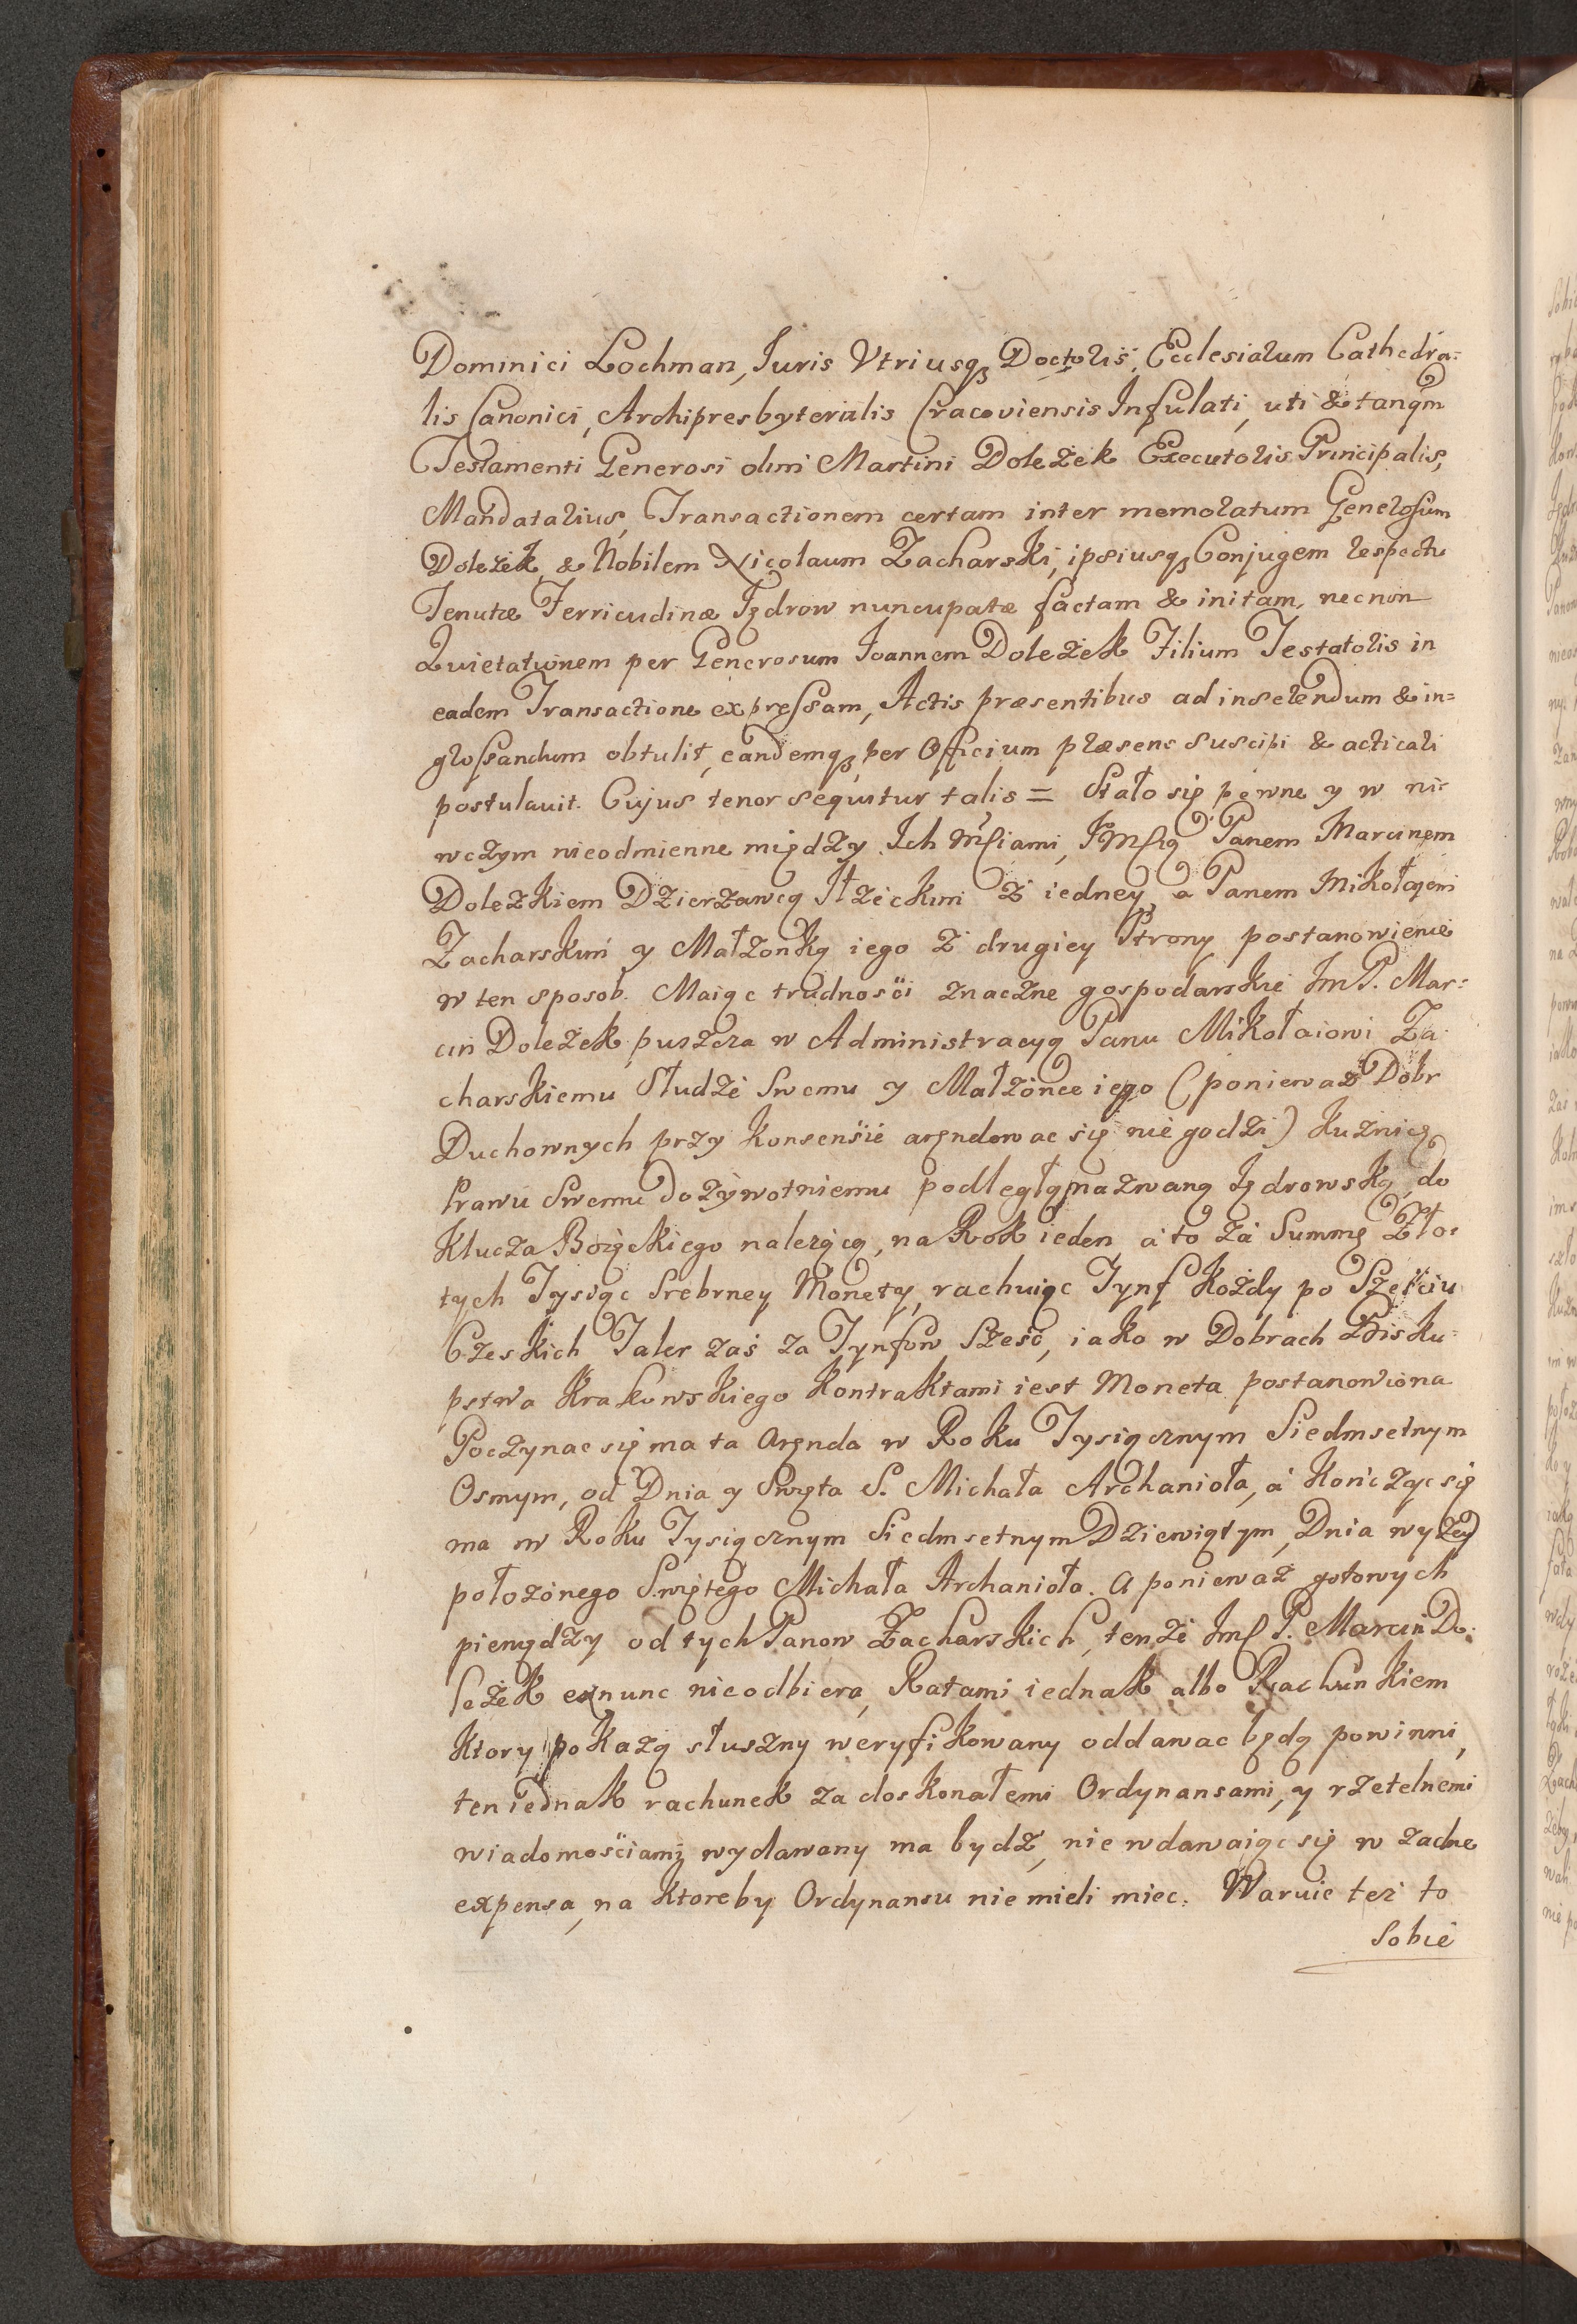 Dominici Lochman, Iuris Vtriusqꝫ Doctoris, Ecclesiarum Cathedra=
lis Canonici, Archipresbyterialis Cracoviensis Infulati, uti & tanqm
Testamenti Generosi olim Martini Doleżek Executoris Principalis,
Mandatarius, Transactionem certam inter memoratum Generosum
Doleżek & Nobilem Nicolaum Zacharski, ipsiusqꝫ Conjugem respectu
Tenutæ Ferricudinæ Jzdrow nuncupatæ factam & initam, necnon
Quietationem per Generosum Joannem Doleżek Filium Testatoris in
eadem Transactione expressam, Actis præsentibus ad inserendum & in=
grossandum obtulit, eandemqꝫ per Officium præsens suscipi & acticari
postulavit. Cujus tenor sequitur talis = Stało się pewne y w ni=
wczym nieodmienne między Ich Mściami, JMścią Panem Marcinem
Doleżkiem Dzierżawcą Iłżeckim z iedney, a Panem Mikołaiem
Zacharskim y Małżonką iego z drugiey Strony postanowienie
w ten sposob. Maiąc trudności znaczne gospodarskie Jm P. Mar=
cin Doleżek, puszcza w Administracyą Panu Mikołaiowi Za
charskiemu Słudze Swemu y Małżonce iego (ponieważ Dobr
Duchownych przy Konsensie arendowac się nie godzi) Kuźnicę
Prawu Swemu dożywotniemu podległą nazwaną Jzdrowską, do
Klucza Bozęckiego nalezącą, na Rok ieden, a to za Summę Zło=
tych Tysiąc Srebrney Monety, rachuiąc Tynf Kożdy po Sześciu
Czeskich Taler zaś za Tynfow Sześć, iako w Dobrach Bisku=
pstwa Krakowskiego Kontraktami iest Moneta postanowiona
Poczynac się ma ta Arenda w Roku Tysiącznym Siedmsetnym
Osmym, od Dnia y Swięta S. Michała Archanioła, a Kończyc się
ma w Roku Tysiącznym Siedmsetnym Dziewiątym, Dnia wyżey
położonego Swiętego Michała Archanioła. A ponieważ gotowych
pieniędzy od tych Panow Zacharskich, tenże Jmś P. Marcin Do=
leżek exnunc nieodbiera, Ratami iednak albo Rachunkiem
Ktory pokażą słuszny weryfikowany oddawac będą powinni,
ten iednak rachunek za doskonałemi Ordynansami, y rzetelnemi
wiadomościami wydawany ma bydź, nie wdawaiąc się w żadne
expensa, na Ktoreby Ordynansu nie mieli miec. Waruie też to
Sobie